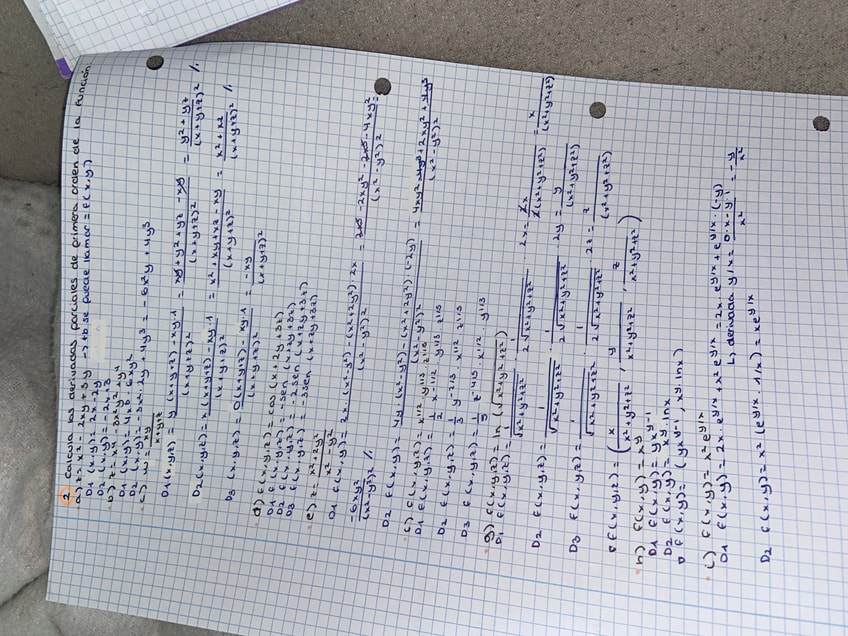 2. Calcula las derivadas parciales de primera orden de la función.
a) z = x² - 2xy + 3y → tb se puede llamar = f(x,y)
D1 (x,y) = 2x - 2y
D2 (x,y) = -2x + 3
b) z = x⁴ - 3x²y² + y⁴
D1 (x,y) = 4x³ - 6xy²
D2 (x,y) = -3x² · 2y + 4y³ = -6x²y + 4y³
c) w = xy / x+y+z
D1 (x,y,z) = y (x+y+z) - xy·1 / (x+y+z)² = xy + y² + yz - xy / (x+y+z)² = y² + yz / (x+y+z)² //.
D2 (x,y,z) = x (x+y+z) - xy·1 / (x+y+z)² = x² + xy + xz - xy / (x+y+z)² = x² + xz / (x+y+z)² //.
D3 (x,y,z) = 0 (x+y+z) - xy·1 / (x+y+z)² = -xy / (x+y+z)²
d) f(x,y,z) = cos (x+2y+3z)
D1 f(x,y,z) = -sen (x+2y+3z)
D2 f(x,y,z) = -2sen (x+2y+3z)
D3 f(x,y,z) = -3sen (x+2y+3z)
e) z = x² + 2y² / x² - y²
D1 f(x,y) = 2x · (x²-y²) - (x²+2y²) · 2x / (x²-y²)² = 2x³ - 2xy² - 2x³ - 4xy² / (x²-y²)² =
-6xy² / (x²-y²)² //.
D2 f(x,y) = 4y · (x²-y²) - (x²+2y²) · (-2y) / (x²-y²)² = 4xy² - 4y³ + 2xy² + 4y³ / (x²-y²)²
f(x,y,z) = x^1/2 · y^1/3 · z^1/5
D1 f(x,y,z) = 1/2 x^-1/2 · y^1/3 · z^1/5
D2 f(x,y,z) = 1/3 y^-2/3 · x^1/2 · z^1/5
D3 f(x,y,z) = 1/5 z^-4/5 · x^1/2 · y^1/3
g) f(x,y,z) = ln (√x²+y²+z²)
D1 f(x,y,z) = 1 / √x²+y²+z² · 1 / 2√x²+y²+z² · 2x = 2x / 2(x²+y²+z²) = x / (x²+y²+z²)
D2 f(x,y,z) = 1 / √x²+y²+z² · 1 / 2√x²+y²+z² · 2y = y / (x²+y²+z²)
D3 f(x,y,z) = 1 / √x²+y²+z² · 1 / 2√x²+y²+z² · 2z = z / (x²+y²+z²)
∇f(x,y,z) = ( x / x²+y²+z² , y / x²+y²+z² , z / x²+y²+z² )
h) f(x,y) = x^y
D1 f(x,y) = y x^y-1
D2 f(x,y) = x^y · ln x
∇ f(x,y) = (y x^y-1 , x^y · ln x)
i) f(x,y) = x² e^y/x
D1 f(x,y) = 2x · e^y/x + x² e^y/x = 2x · e^y/x + e^y/x · (-y)
↳ derivada y/x = 0·x - y·1 / x² = -y / x²
D2 f(x,y) = x² (e^y/x · 1/x) = x e^y/x